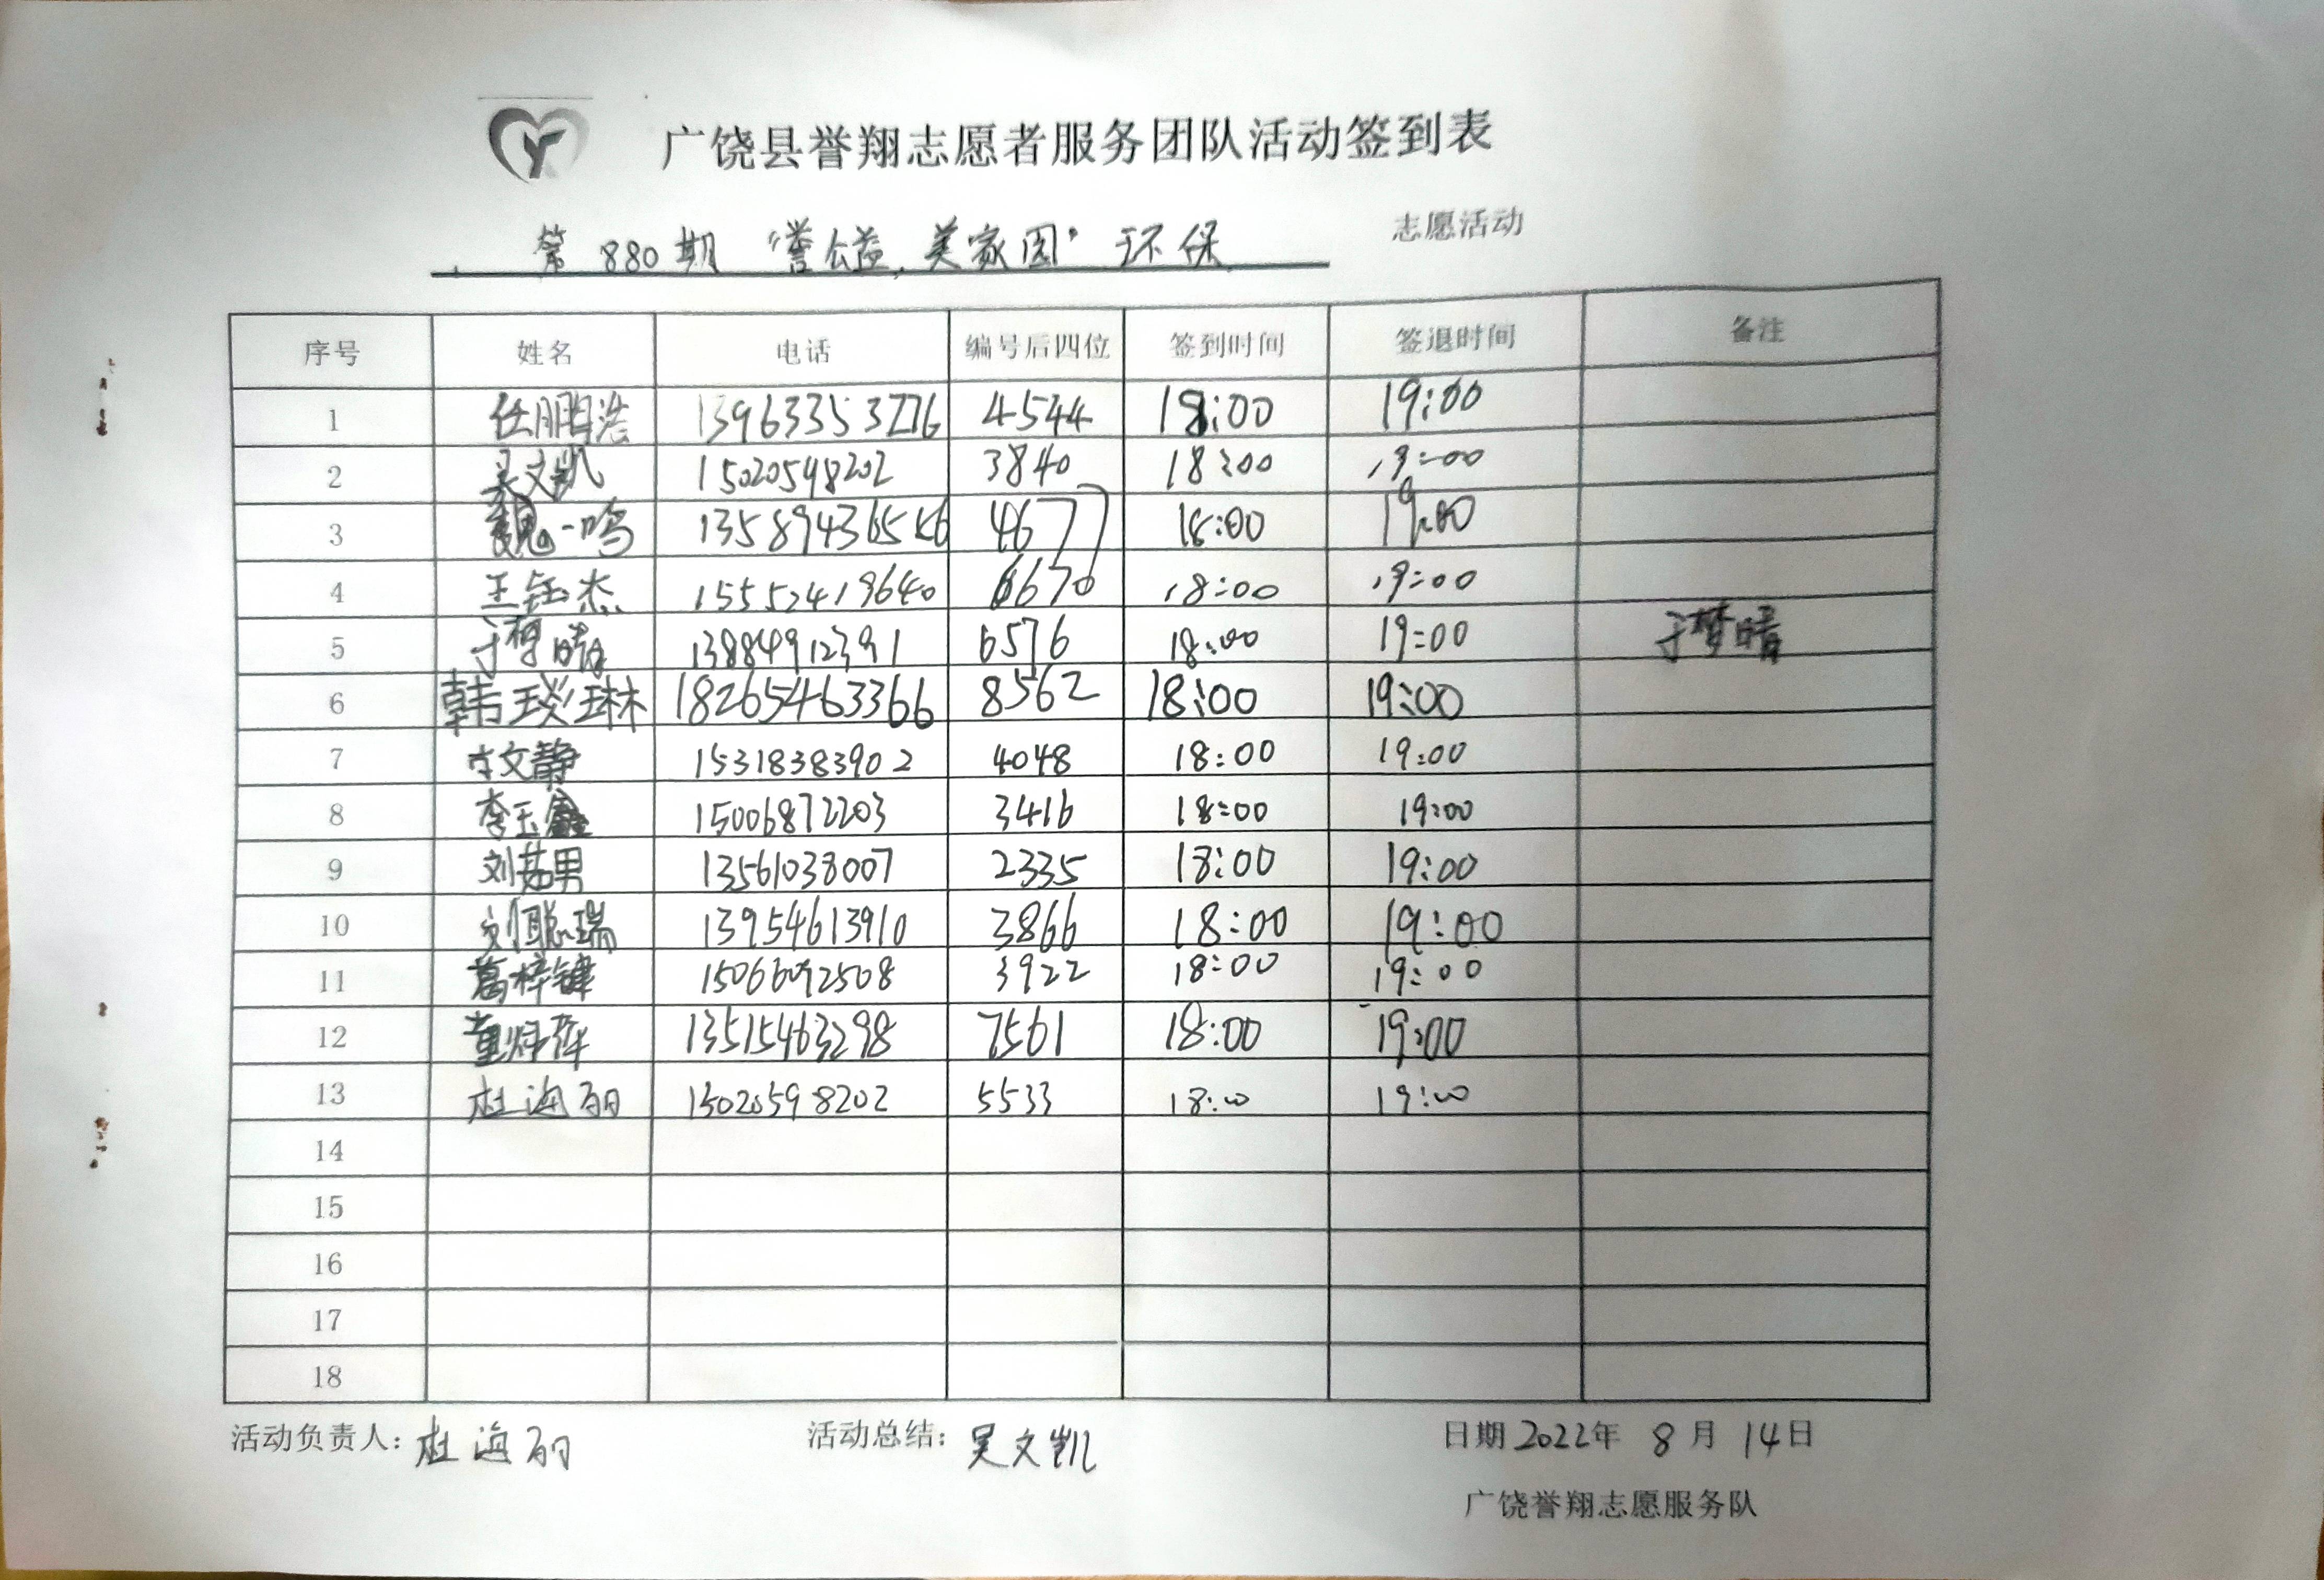 广饶县誉翔志愿者服务团队活动签到表
第 880 期 “誉公益, 美家园” 环保 志愿活动
序号 姓名 电话 编号后四位 签到时间 签退时间 备注
1 任腾浩 13963353276 4544 18:00 19:00
2 吴文凯 15020598202 3840 18:00 19:00
3 魏一鸣 13589436556 4677 18:00 19:00
4 王钰杰 15552419640 6670 18:00 19:00
5 于梦晴 13884912391 6576 18:00 19:00 于梦晴
6 韩琰琳 18265463366 8562 18:00 19:00
7 李文静 15318383902 4048 18:00 19:00
8 李玉鑫 15006872203 3416 18:00 19:00
9 刘茹男 13561038007 2335 18:00 19:00
10 刘聪瑞 13954613910 3866 18:00 19:00
11 葛梓健 15066092508 3922 18:00 19:00
12 董烀萍 13515463298 7561 18:00 19:00
13 杜海丽 15020598202 5533 18:00 19:00
14
15
16
17
18
活动负责人: 杜海丽 活动总结: 吴文凯 日期 2022年 8 月 14日
广饶誉翔志愿服务队